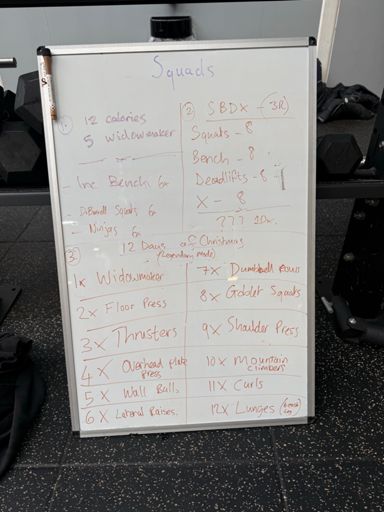 Squads
①
12 calories
5 widowmaker
- Inc Bench 6x
- DBbell Squats 6x
- Ninjas 6x
② SBDX - 3R
Squats - 8
Bench - 8
Deadlifts - 8
X - 8
??? 10x
③ 12 Days of Christmas
(Legendary mode)
1x Widowmaker
2x Floor Press
3x Thrusters
4x Overhead plate
Press
5x Wall Balls
6x Lateral Raises.
7x Dumbbell Rows
8x Goblet Squats
9x Shoulder Press
10x Mountain
climbers
11x Curls
12x Lunges (6 each leg)